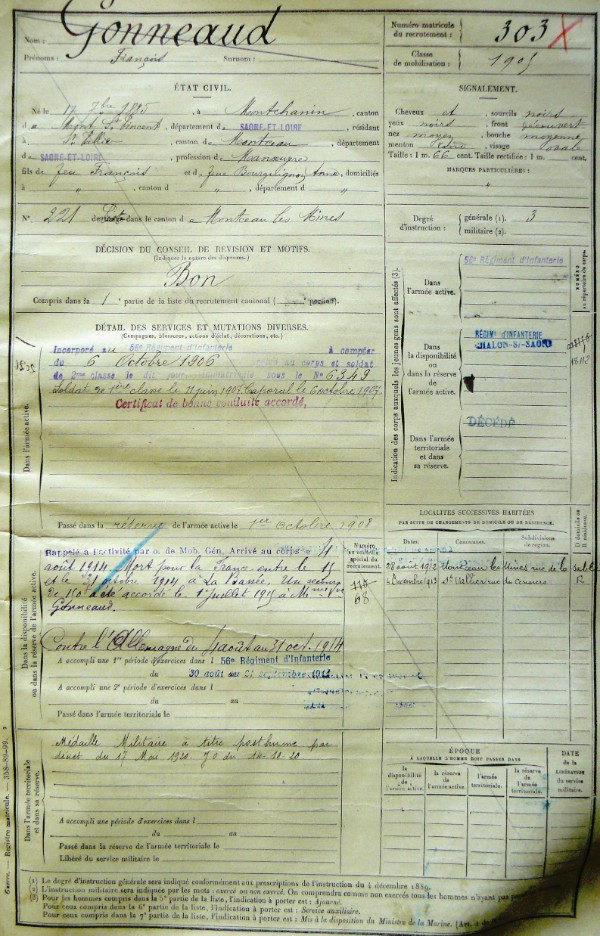 Nom : Gonneaud
Prénoms : François Surnom :
Numéro matricule du recrutement : 303
Classe de mobilisation : 1905
ÉTAT CIVIL.
Né le 12 7bre 1885, à Montchanin, canton
d Mont St Vincent, département d SAONE-ET-LOIRE, résidant
à St Vallier, canton d Montceau, département
d SAONE-ET-LOIRE, profession d Manœuvre
fils d feu François et d feue Bourguignon, domiciliés
à " , canton d " , département d "
N° 221 de liste dans le canton d Montceau les Mines
SIGNALEMENT.
Cheveux et sourcils noirs
yeux noirs, front découvert
nez moyen, bouche moyenne
menton, visage ovale
Taille : 1 m. 66 cent. Taille rectifiée : 1 m. cent.
MARQUES PARTICULIÈRES :
"
Degré d'instruction : générale (1). 3
militaire (2).
DÉCISION DU CONSEIL DE REVISION ET MOTIFS.
(Indiquer la nature des dispenses.)
Bon
Compris dans la 1e partie de la liste du recrutement cantonal
DÉTAIL DES SERVICES ET MUTATIONS DIVERSES.
(Campagnes, blessures, actions d'éclat, décorations, etc.)
Incorporé au 56e Régiment d'Infanterie à compter
du 6 Octobre 1906 au corps et soldat
de 2me classe le sous le No 6349
Soldat de 1ère classe le 21 juin 1907 Caporal le 6 octobre 1907
Certificat de bonne conduite accordé.
Dans l'armée active.
Passé dans la réserve de l'armée active le 1er Octobre 1908
Indication des corps auxquels les jeunes gens sont affectés (3).
Dans l'armée active.
56e Régiment d'Infanterie
Dans la disponibilité ou dans la réserve de l'armée active.
RÉGIMt D'INFANTERIE
CHALON-S/-SAONE
Dans l'armée territoriale et dans sa réserve.
DÉCÉDÉ
NUMÉRO au répertoire du corps.
LOCALITÉS SUCCESSIVES HABITÉES
PAR SUITE DE CHANGEMENTS DE DOMICILE OU DE RÉSIDENCE.
Dates. Communes. Subdivisions de région. D domicile ou R résidence
28 août 1912 Montceau les Mines rue de la
4 Novembre 1913 St Vallier rue du
Dans la disponibilité ou dans la réserve de l'armée active.
Rappelé à l'activité par o. de Mob. Gén. Arrivé au corps le 4
août 1914. Mort pour la France entre le 15
et le 31 octobre 1914 à La Bassée. Un secours
de 150f a été accordé le 1 juillet 1915 à Mme vve
Gonneaud.
Numéro au contrôle spécial du recrutement.
68
Contre l'Allemagne du 4 août au 31 oct. 1914
A accompli une 1re période d'exercices dans l 56e Régiment d'Infanterie
du 30 août au 21 septembre
A accompli une 2e période d'exercices dans l
du au
Passé dans l'armée territoriale le
Dans l'armée territoriale et dans sa réserve.
Médaille Militaire à titre posthume par
décret du 17 Mai 1920 J.O du
A accompli une période d'exercices dans l
du au
Passé dans la réserve de l'armée territoriale le
Libéré du service militaire le
ÉPOQUE
À LAQUELLE L'HOMME DOIT PASSER DANS
la disponibilité de l'armée active. la réserve de l'armée active. l'armée territoriale. la réserve de l'armée territoriale.
DATE de la libération du service militaire.
Guerre. — Registre matricule. — 358-89-99.
(1) Le degré d'instruction générale sera indiqué conformément aux prescriptions de l'instruction du 4 décembre 1889.
(2) L'instruction militaire sera indiquée par les mots : exercé ou non exercé. On comprendra comme non exercés tous les hommes n'ayant pas
(3) Pour les hommes compris dans la 5e partie de la liste, l'indication à porter est : Ajourné.
Pour ceux compris dans la 6e partie de la liste, l'indication à porter est : Service auxiliaire.
Pour ceux compris dans la 7e partie de la liste, l'indication à porter est : Mis à la disposition du Ministre de la Marine.